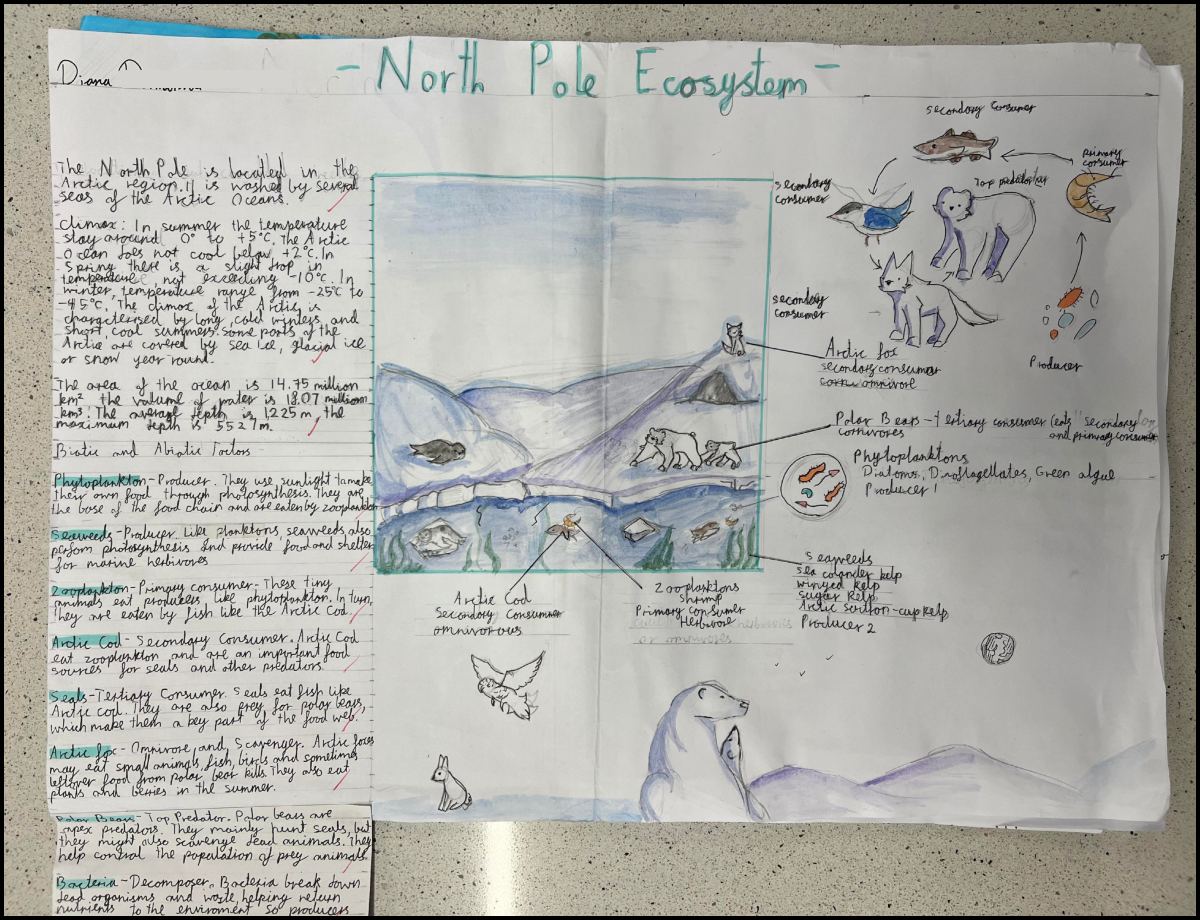 Diana D
- North Pole Ecosystem -
The North Pole is located in the
Arctic region. It is washed by several
seas of the Arctic Oceans.
Climax: In summer the temperature
stay around 0° to +5°C. The Arctic
Ocean does not cool below +2°C. In
Spring there is a slight drop in
temperature, not exceeding -10°C. In
winter, temperature range from -25°C to
-45°C. The climax of the Arctic is
characterised by long, cold winters and
short, cool summers. Some parts of the
Arctic are covered by sea ice, glacial ice
or snow year round.
The area of the ocean is 14.75 million
km² the volume of water is 18.07 million
km³. The average depth is 1225 m, the
maximum depth is 5527 m.
Biotic and Abiotic Factors -
Phytoplankton - Producer. They use sunlight to make
their own food through photosynthesis. They are
the base of the food chain and are eaten by zooplankton
Seaweeds - Producer. Like planktons, seaweeds also
perform photosynthesis and provide food and shelter
for marine herbivores
Zooplankton - Primary consumer - These tiny
animals eat producers like phytoplankton. In turn,
they are eaten by fish like the Arctic Cod.
Arctic Cod - Secondary Consumer. Arctic Cod
eat zooplankton and are an important food
sources for seals and other predators.
Seals - Tertiary Consumer. Seals eat fish like
Arctic cod. They are also prey for polar bears,
which make them a key part of the food web.
Arctic fox - Omnivore and Scavenger. Arctic foxes
may eat small animals, fish, birds and sometimes
leftover food from polar bear kills. They also eat
plants and berries in the summer.
Polar Bear - Top Predator. Polar bears are
apex predators. They mainly hunt seals, but
they might also scavenge dead animals. They
help control the population of prey animals.
Bacteria - Decomposer. Bacteria break down
dead organisms and waste, helping return
nutrients to the enviroment so producers
secondary consumer
primary
consumer
Top predator
secondary
consumer
secondary
consumer
Producer
Arctic fox
secondary consumer
omnivore
Polar Bears - tertiary consumer (eats secondary
carnivores and primary consumer
Phytoplanktons
Diatoms, Dinoflagellates, Green algae
Producer 1
Seaweeds
sea colander kelp
winged kelp
sugar kelp
Arctic suction-cup kelp
Producer 2
Arctic Cod
Secondary Consumer
omnivorous
Zooplanktons
Shrimp
Primary Consumer
Herbivore
or omnivores